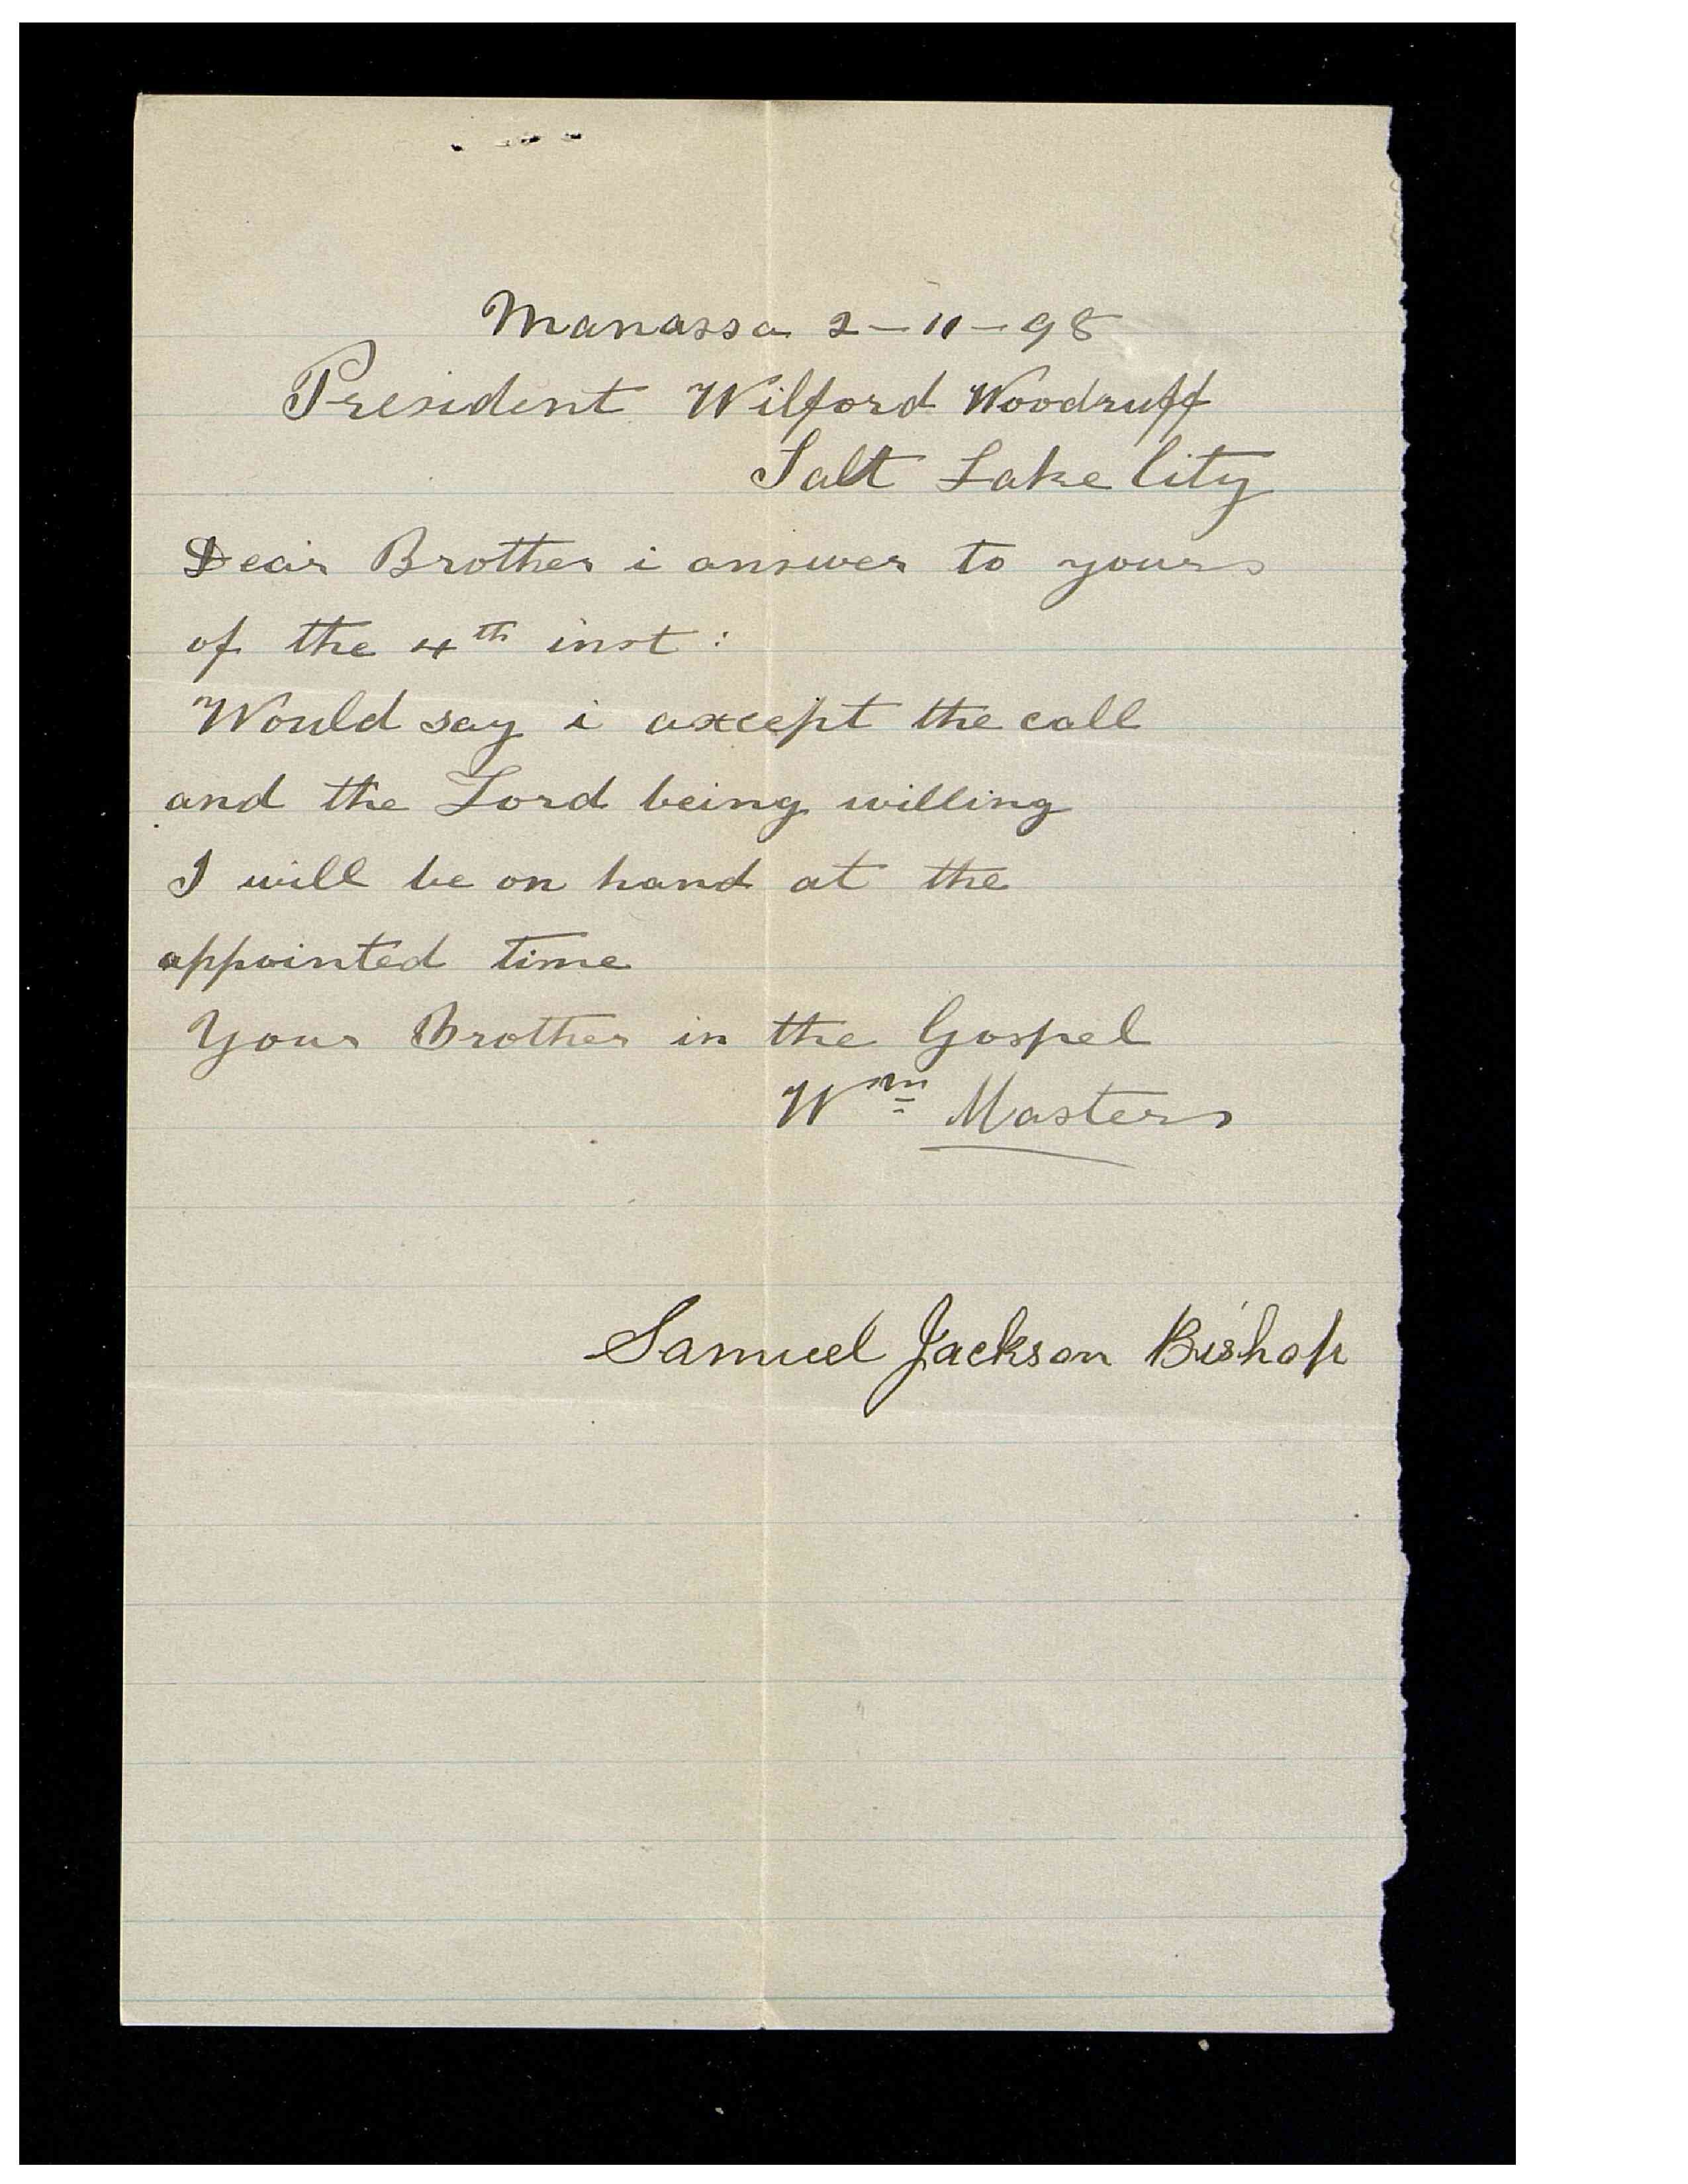 Manassa 2-11-98
President Wilford Woodruff
Salt Lake City
Dear Brother i answer to yours
of the 4th inst:
Would say i axcept the call
and the Lord being willing
I will be on hand at the
appointed time
Your Brother in the Gospel
Wm Masters
Samuel Jackson Bishop